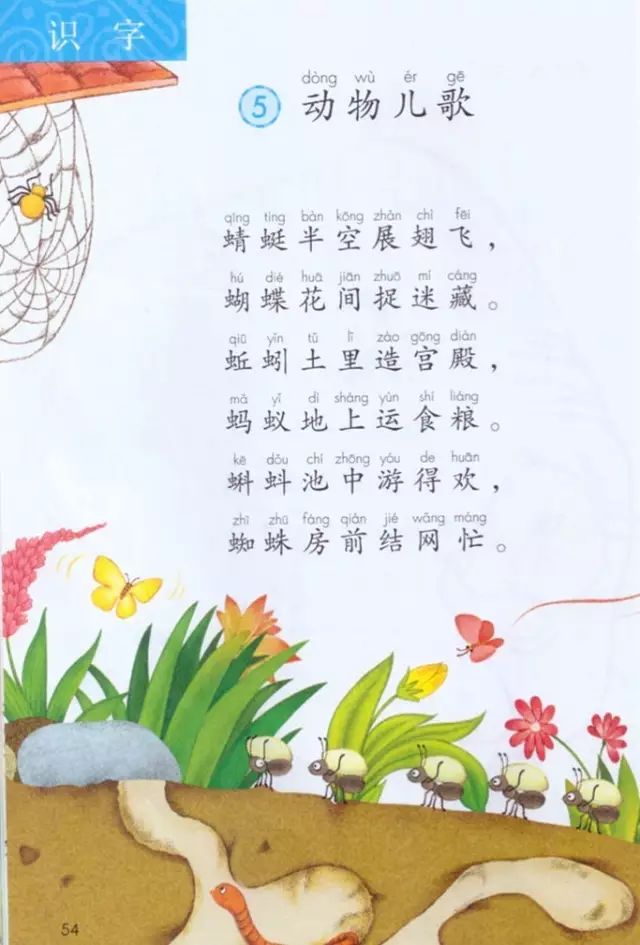 识字
dòng wù ér gē
5 动物儿歌
qīng tíng bàn kōng zhǎn chì fēi
蜻蜓半空展翅飞，
hú dié huā jiān zhuō mí cáng
蝴蝶花间捉迷藏。
qiū yǐn tǔ lǐ zào gōng diàn
蚯蚓土里造宫殿，
mǎ yǐ dì shàng yùn shí liáng
蚂蚁地上运食粮。
kē dǒu chí zhōng yóu de huān
蝌蚪池中游得欢，
zhī zhū fáng qián jié wǎng máng
蜘蛛房前结网忙。
54